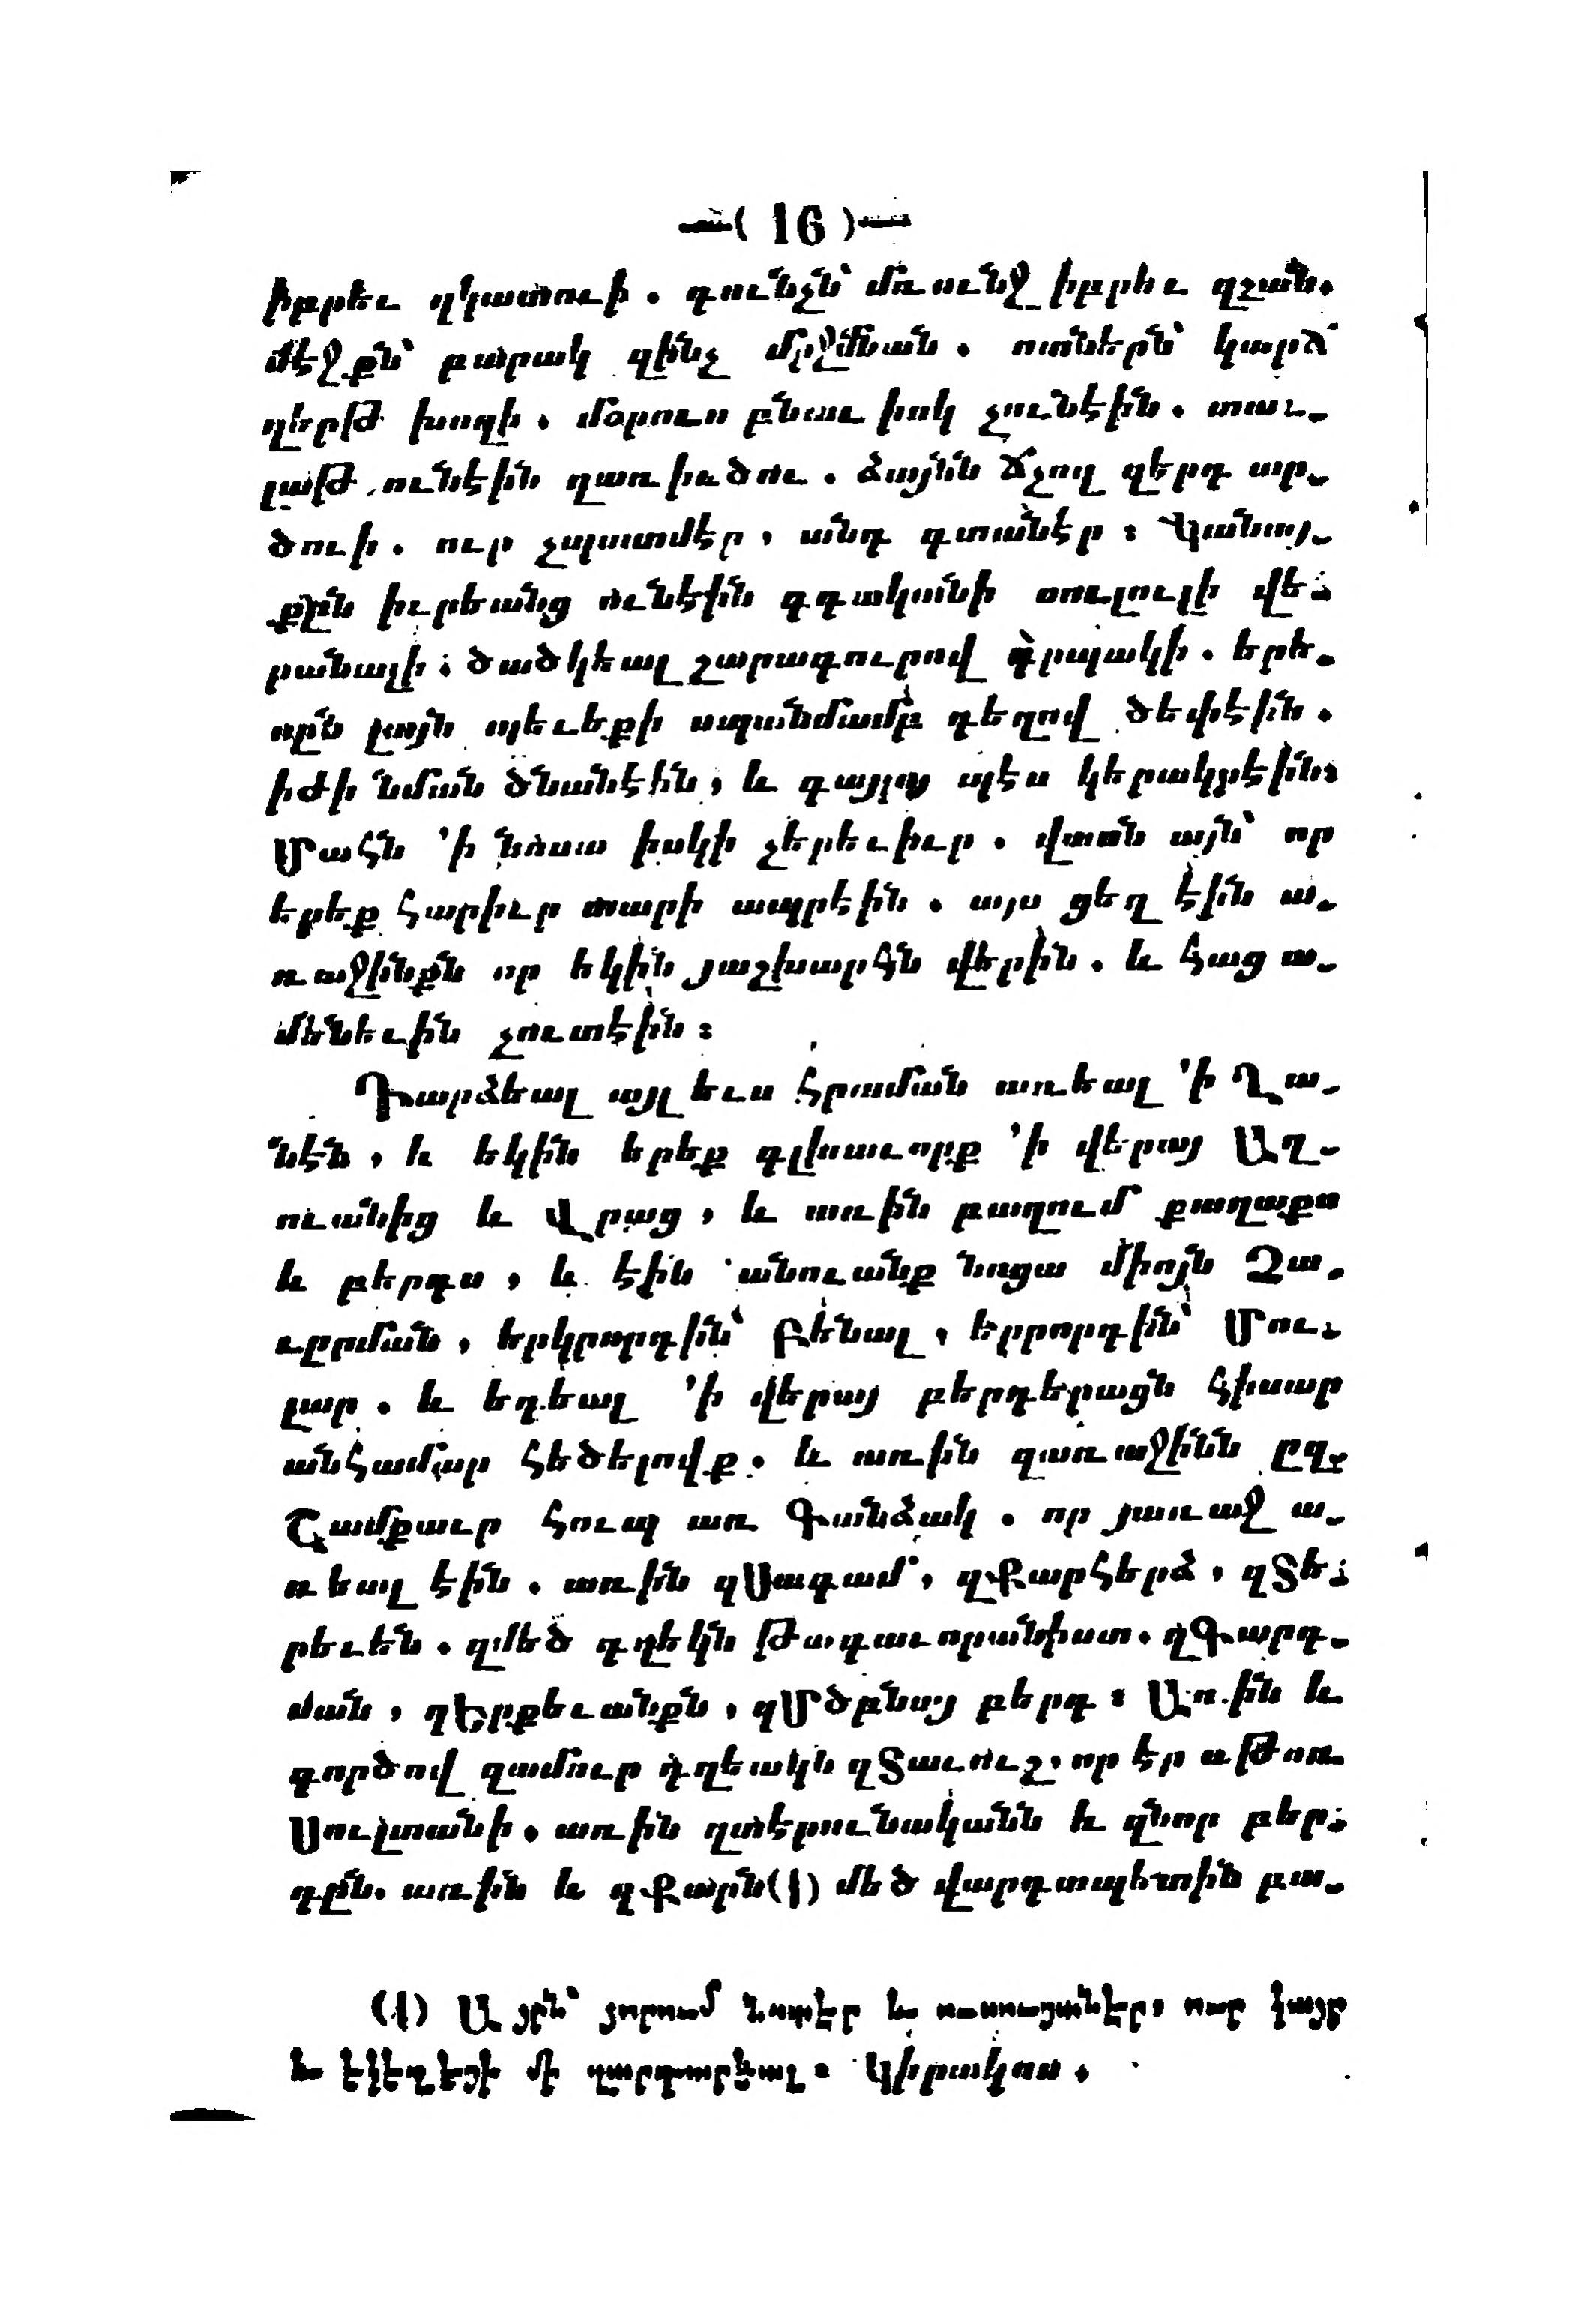 —( 16 )—
իբրեւ զկատուի. գունչն՝ մռունջ իբրեւ զշան.
մէջքն՝ բարակ զինչ մրջման. ոտներն՝ կարճ
զերթ խոզի. մօրուս բնաւ իսկ չունէին. տա-
լաթ ունէին զառիւծու. ձայնն ճչող զերդ ար-
ծուի. ուր չպատմէր, անդ գտանէր։ Կանայ-
քըն իւրեանց ունէին գդականի սուլուլի վե-
րանալի. ծածկեալ շարագուրով դիպակի. երե-
սըն լայն պեւեքի սպանմամբ դեղով ծեփէին.
իժի նման ծնանէին, և գայլոց պէս կերակրէին։
Մահն ՚ի նոսա իսկի չերեւիւր. վասն այն՝ որ
երեք հարիւր տարի ապրէին. այս ցեղ էին ա-
ռաջինքն որ եկին յաշխարհն վերին. և հաց ա-
մենեւին չուտէին։
Դարձեալ այլ եւս հրաման առեալ ՚ի Ղա-
նէն, և եկին երեք գլխաւորք ՚ի վերայ Աղ-
ուանից և Վրաց, և առին բազում քաղաքս
և բերդս, և էին անուանք նոցա միոյն Չա-
ւըրման, երկրորդին՝ Բենալ, երրորդին՝ Մու-
լար. և եդեալ ՚ի վերայ բերդերացն հիսար
անհամար հեծելովք. և առին զառաջինն ըզ-
Շամքաւր հուպ առ Գանձակ. որ յառաջ ա-
ռեալ էին. առին զՍագամ, զՔարհերձ, զՏե-
րեւեն. զմեծ գղեկն թագաւորանիստ. զԳարդ-
ման, զԷրքեւանքն, զՄծբնայ բերդ։ Առին և
գործով զամուր դղեակն զՏաւուշ. որ էր աթոռ
Սուլտանի. առին զտէրունականն և զնոր բեր-
դըն. առին և զՔարն(ֈ) մեծ վարդապետին բա-
(ֈ) Այրն՝ յորում նստէր և ուսուցանէր, ուր հայր
և եկեղեցի մի զարդարեալ։ Կիրակոս.